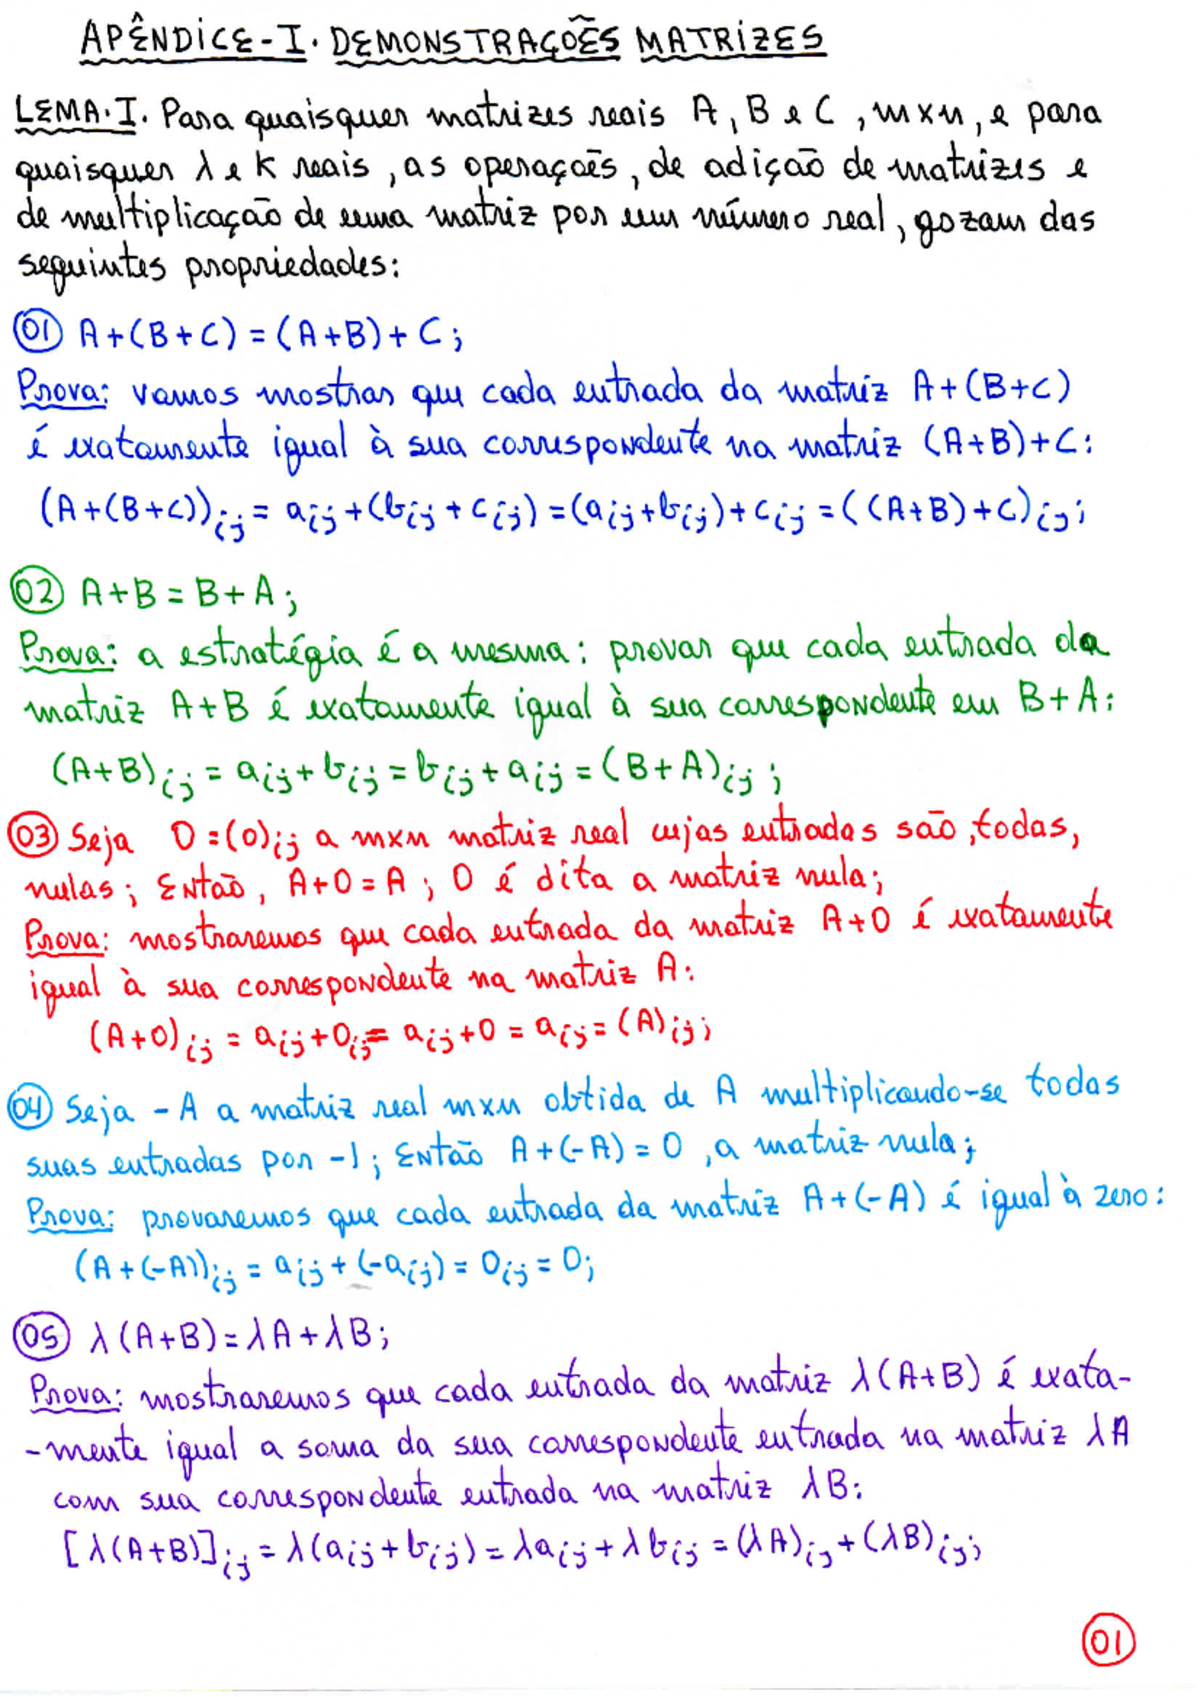 APÊNDICE-I. DEMONSTRAÇÕES MATRIZES
LEMA.I. Para quaisquer matrizes reais A, B e C, mxn, e para
quaisquer λ e K reais, as operações, de adição de matrizes e
de multiplicação de uma matriz por um número real, gozam das
seguintes propriedades:
01 A+(B+C)=(A+B)+C;
Prova: vamos mostrar que cada entrada da matriz A+(B+C)
é exatamente igual à sua correspondente na matriz (A+B)+C:
(A+(B+C))ij = aij+(bij+cij)=(aij+bij)+cij=((A+B)+C)ij;
02 A+B=B+A;
Prova: a estratégia é a mesma: provar que cada entrada da
matriz A+B é exatamente igual à sua correspondente em B+A:
(A+B)ij = aij+bij=bij+aij=(B+A)ij;
03 Seja O=(0)ij a mxn matriz real cujas entradas são, todas,
nulas; Então, A+O=A; O é dita a matriz nula;
Prova: mostraremos que cada entrada da matriz A+O é exatamente
igual à sua correspondente na matriz A:
(A+O)ij = aij+Oij= aij+0=aij=(A)ij;
04 Seja -A a matriz real mxn obtida de A multiplicando-se todas
suas entradas por -1; Então A+(-A)=O, a matriz nula;
Prova: provaremos que cada entrada da matriz A+(-A) é igual à zero:
(A+(-A))ij = aij+(-aij)=Oij=0;
05 λ(A+B)=λA+λB;
Prova: mostraremos que cada entrada da matriz λ(A+B) é exata-
-mente igual a soma da sua correspondente entrada na matriz λA
com sua correspondente entrada na matriz λB:
[λ(A+B)]ij = λ(aij+bij)=λaij+λbij=(λA)ij+(λB)ij;
01